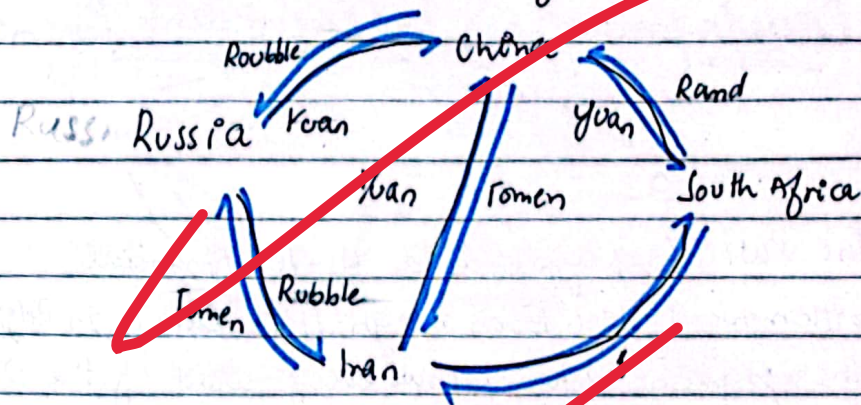 Roubble
China
Rand
Russia
Yuan
Yuan
South Africa
Yuan
Tomen
Tomen
Rubble
Iran